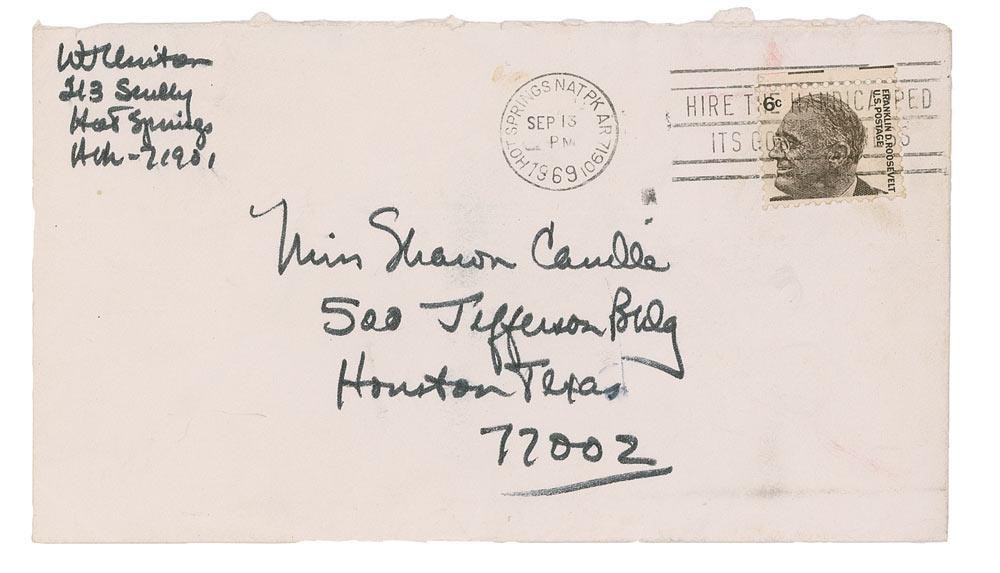 WJClinton
213 Scully
Hot Springs
Ark - 71901
HOT SPRINGS NAT. PK. AR 71901
SEP 13
PM
1969
HIRE THE HANDICAPPED
ITS GOOD
6c
FRANKLIN D. ROOSEVELT
U.S. POSTAGE
Miss Sharon
500 Jefferson Bldg
Houston Texas
77002